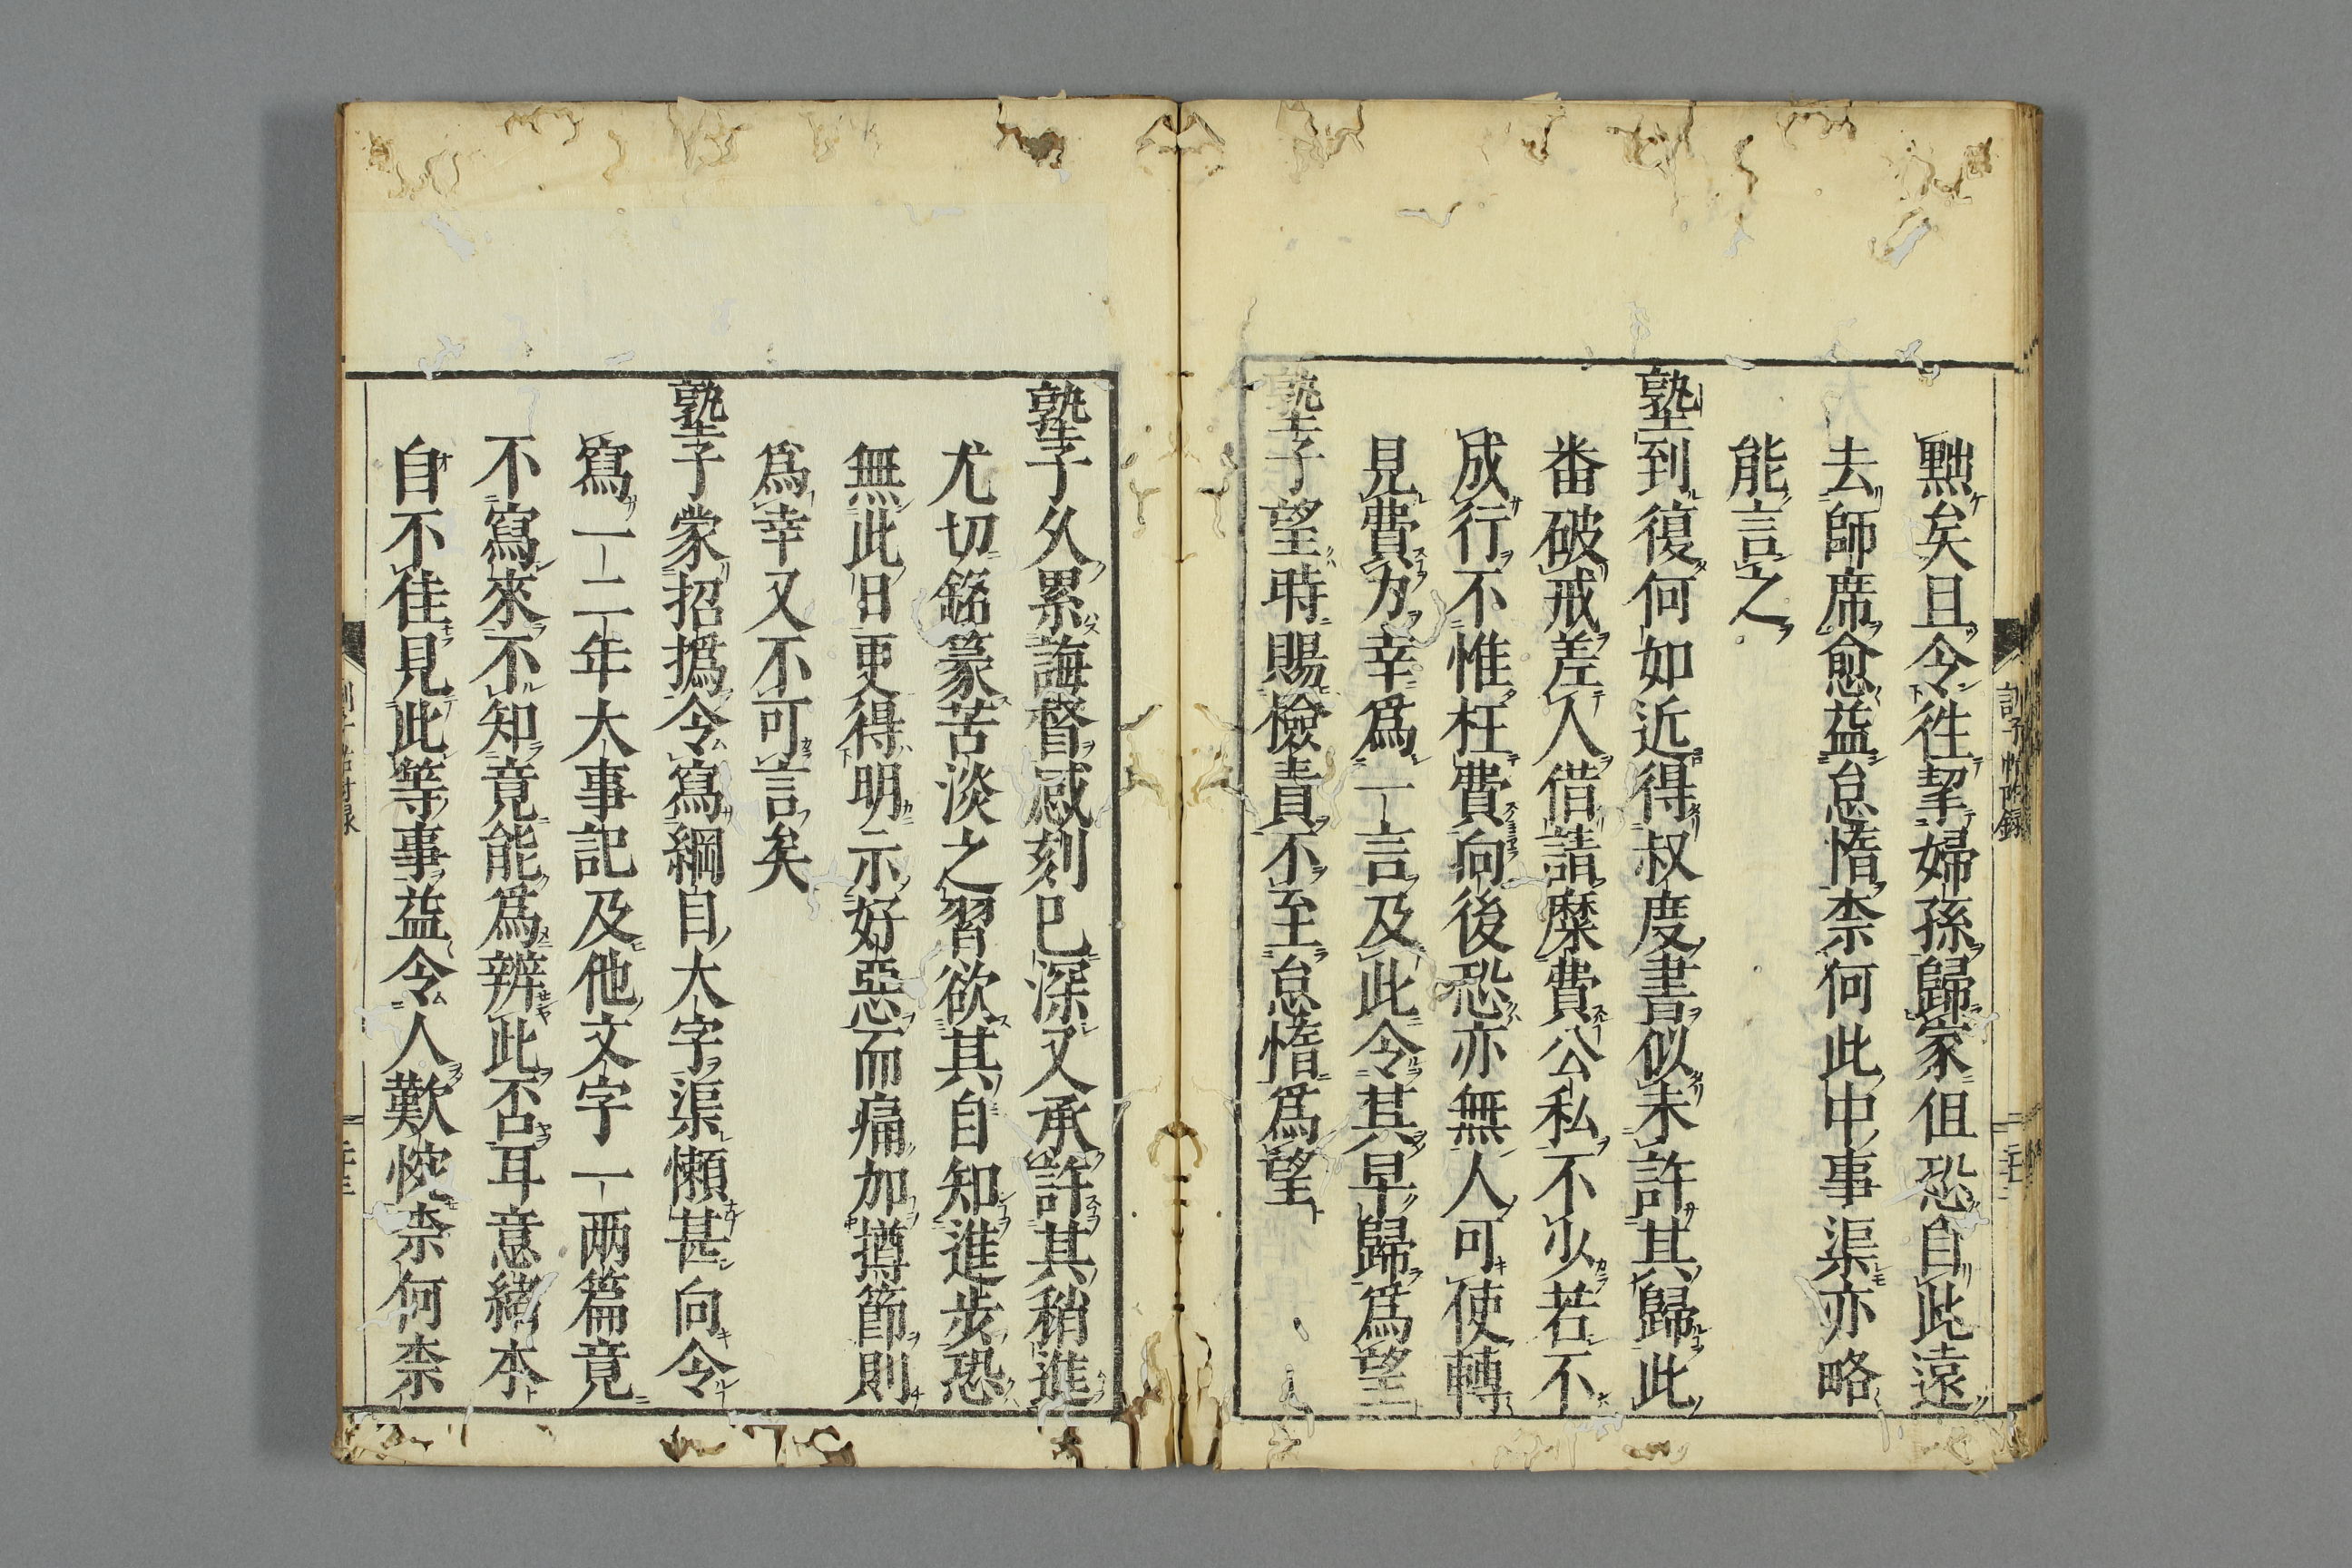 黜矣且令徃挈婦孫歸家但恐自此遠
去師席愈益怠惰柰何此中事渠亦略
能言之
塾到復何如近得叔度書似未許其歸此
番破戒差人借請縻費公私不少若不
成行不惟枉費向後恐亦無人可使轉
見費力幸爲一言及此令其早歸爲望
塾子望時賜檢責不至怠惰爲望
塾子久累誨督感刻已深又承許其稍進
尤切銘篆苦淡之習欲其自知進步恐
無此日更得明示好惡而痛加撙節則
爲幸又不可言矣
塾子蒙招撝令寫綱目大字渠懶甚向令
寫一二年大事記及他文字一两篇竟
不寫來不知竟能爲辨此否耳意緒本
自不佳見此等事益令人歎惋柰何柰
訓子帖附録